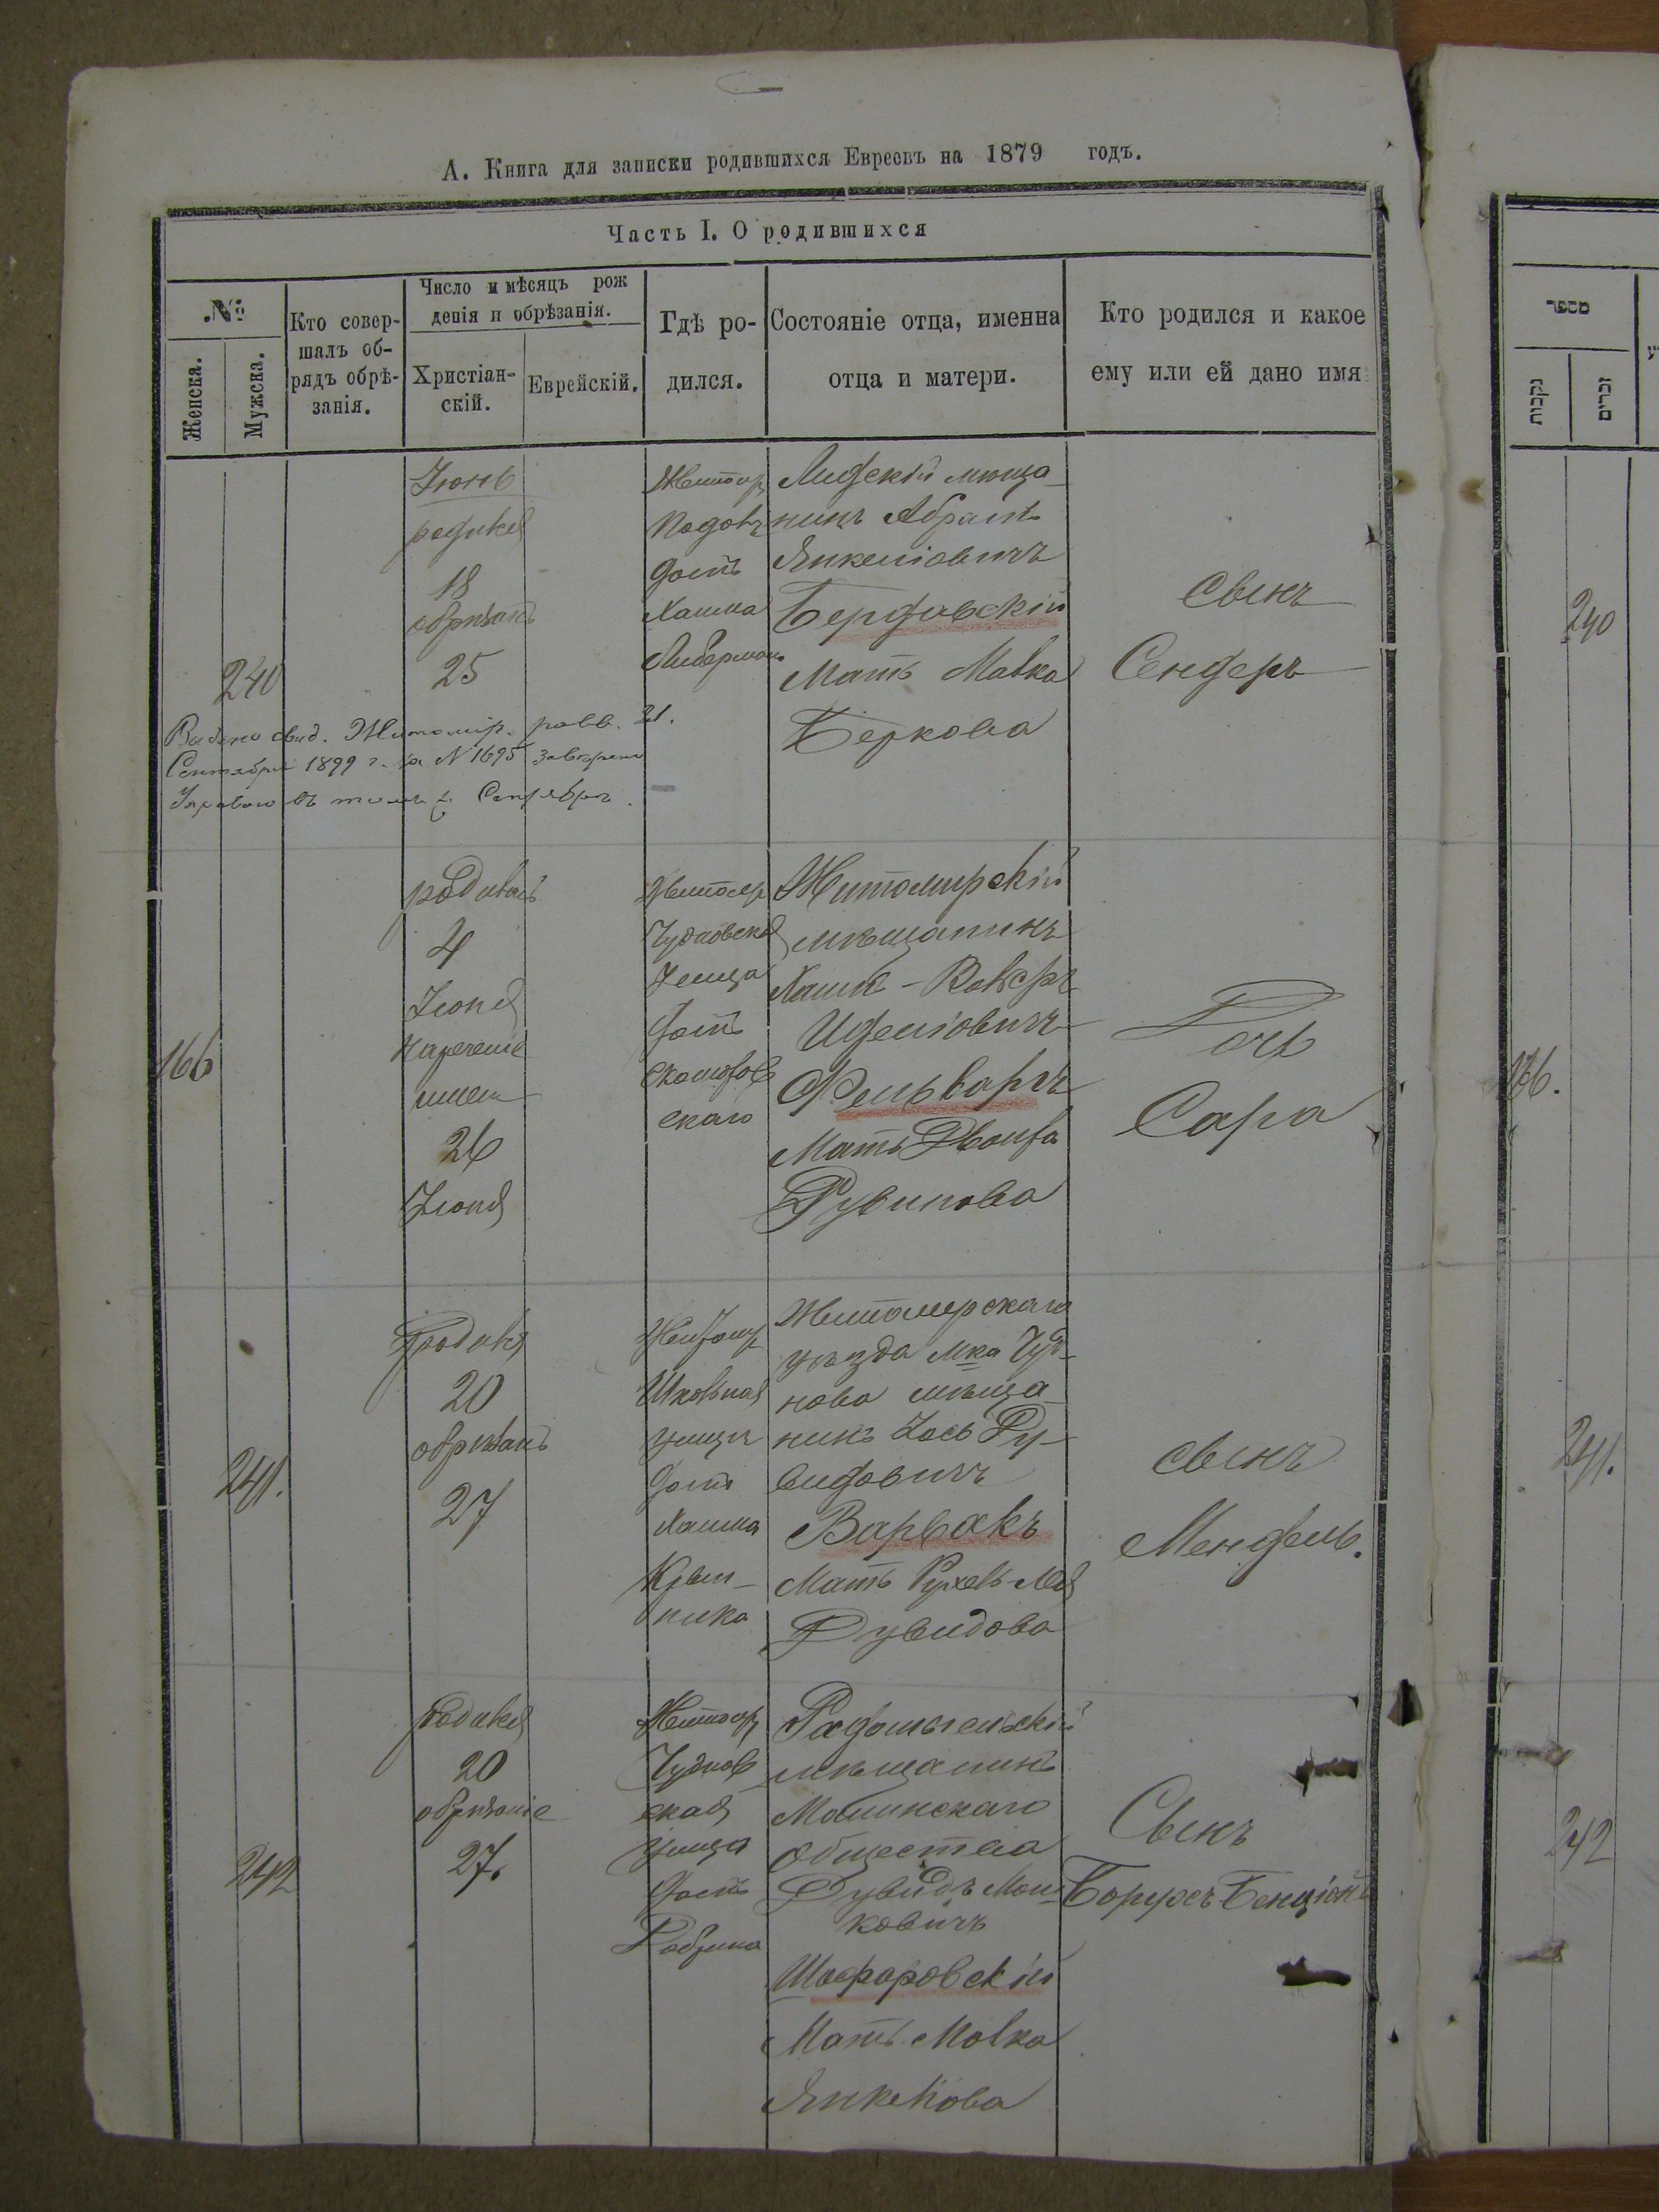 А. Книга для записки родившихся Евреевъ на 1879 годъ.
Часть I. О родившихся
№
Женска.
Мужска.
Кто совер-
шалъ об-
рядъ обрѣ-
занія.
Число и мѣсяцъ рож
денія и обрѣзанія.
Христіан-
скій.
Еврейскій.
Гдѣ ро-
дился.
Состояніе отца, именна
отца и матери.
Кто родился и какое
ему или ей дано имя
240
Іюнь
родился
18
обрѣзанъ
25
Житомір
домъ
Хаима
Либермана
Лидскій мѣща-
нинъ Абрамъ
Янкеліовичъ
Бердовскій
Мать Малка
Беркова
сынъ
Сендеръ
Выдано свид. Житомір. равв. 21.
Сентября 1899 г. за № 1695
Управою въ томъ ж Сентябрѣ.
166
родилась
4
Іюня
нареченіе
имени
26
Іюня
Житомір
Чудновская
улица
домъ
скаго
Житомирскій
мѣщанинъ
Хаимъ-Волфъ
Фельваргъ
Мать Двойра
Рувинова
Дочь
Сара
241.
родился
20
обрѣзанъ
27
Житомір
Школьная
улица
домъ
Хаима
Крып-
ника
Житомирскаго
уѣзда мка Чуд-
нова мѣща-
нинъ Іось Ду-
видовичъ
Варвакъ
Мать Рухель-Лея
Дувидова
сынъ
Мендель.
242
родился
20
обрѣзаніе
27.
Житомір
Чуднов
ская
улица
домъ
Радомысльскій
мѣщанинъ
Малинскаго
общества
Дувидъ Мош-
ковичъ
Шафаровскій
Мать Малка
Янкелова
Сынъ
Борухъ-Бенціонъ
מספר
נקבות
זכרים
240
166.
241.
242